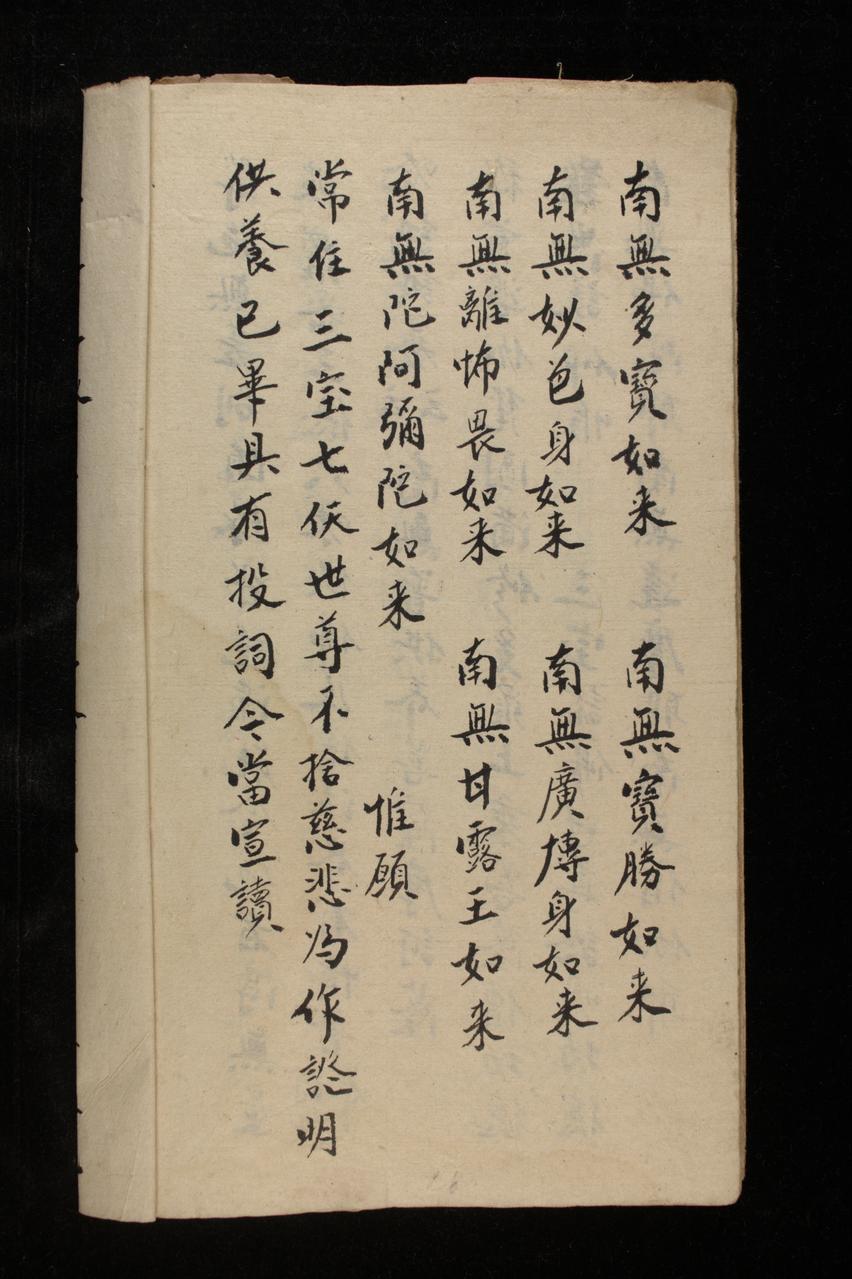 南無多寶如来　南無寶勝如来
南無妙色身如来　南無廣愽身如来
南無離怖畏如来　南無甘露王如来
南無陀阿彌陀如来　惟願
常住三宝七仸世尊不捨慈悲為作證明
供養已畢具有投詞今當宣讀